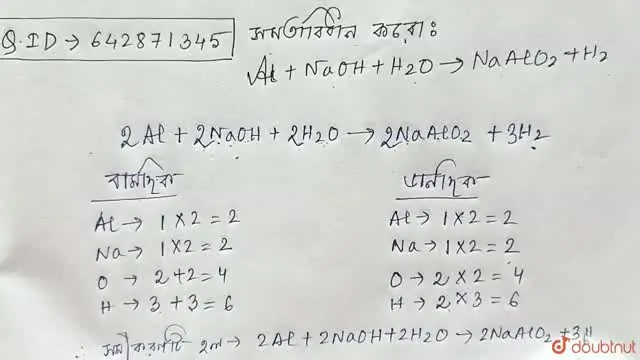 Q.ID → 642871345
সমতাবিধান করো:
Al + NaOH + H2O → NaAlO2 + H2
2Al + 2NaOH + 2H2O → 2NaAlO2 + 3H2
বামদিক
ডানদিক
Al → 1 × 2 = 2
Al → 1 × 2 = 2
Na → 1 × 2 = 2
Na → 1 × 2 = 2
O → 2 + 2 = 4
O → 2 × 2 = 4
H → 3 + 3 = 6
H → 2 × 3 = 6
∴ সমীকরণটি হল → 2Al + 2NaOH + 2H2O → 2NaAlO2 + 3H
doubtnut